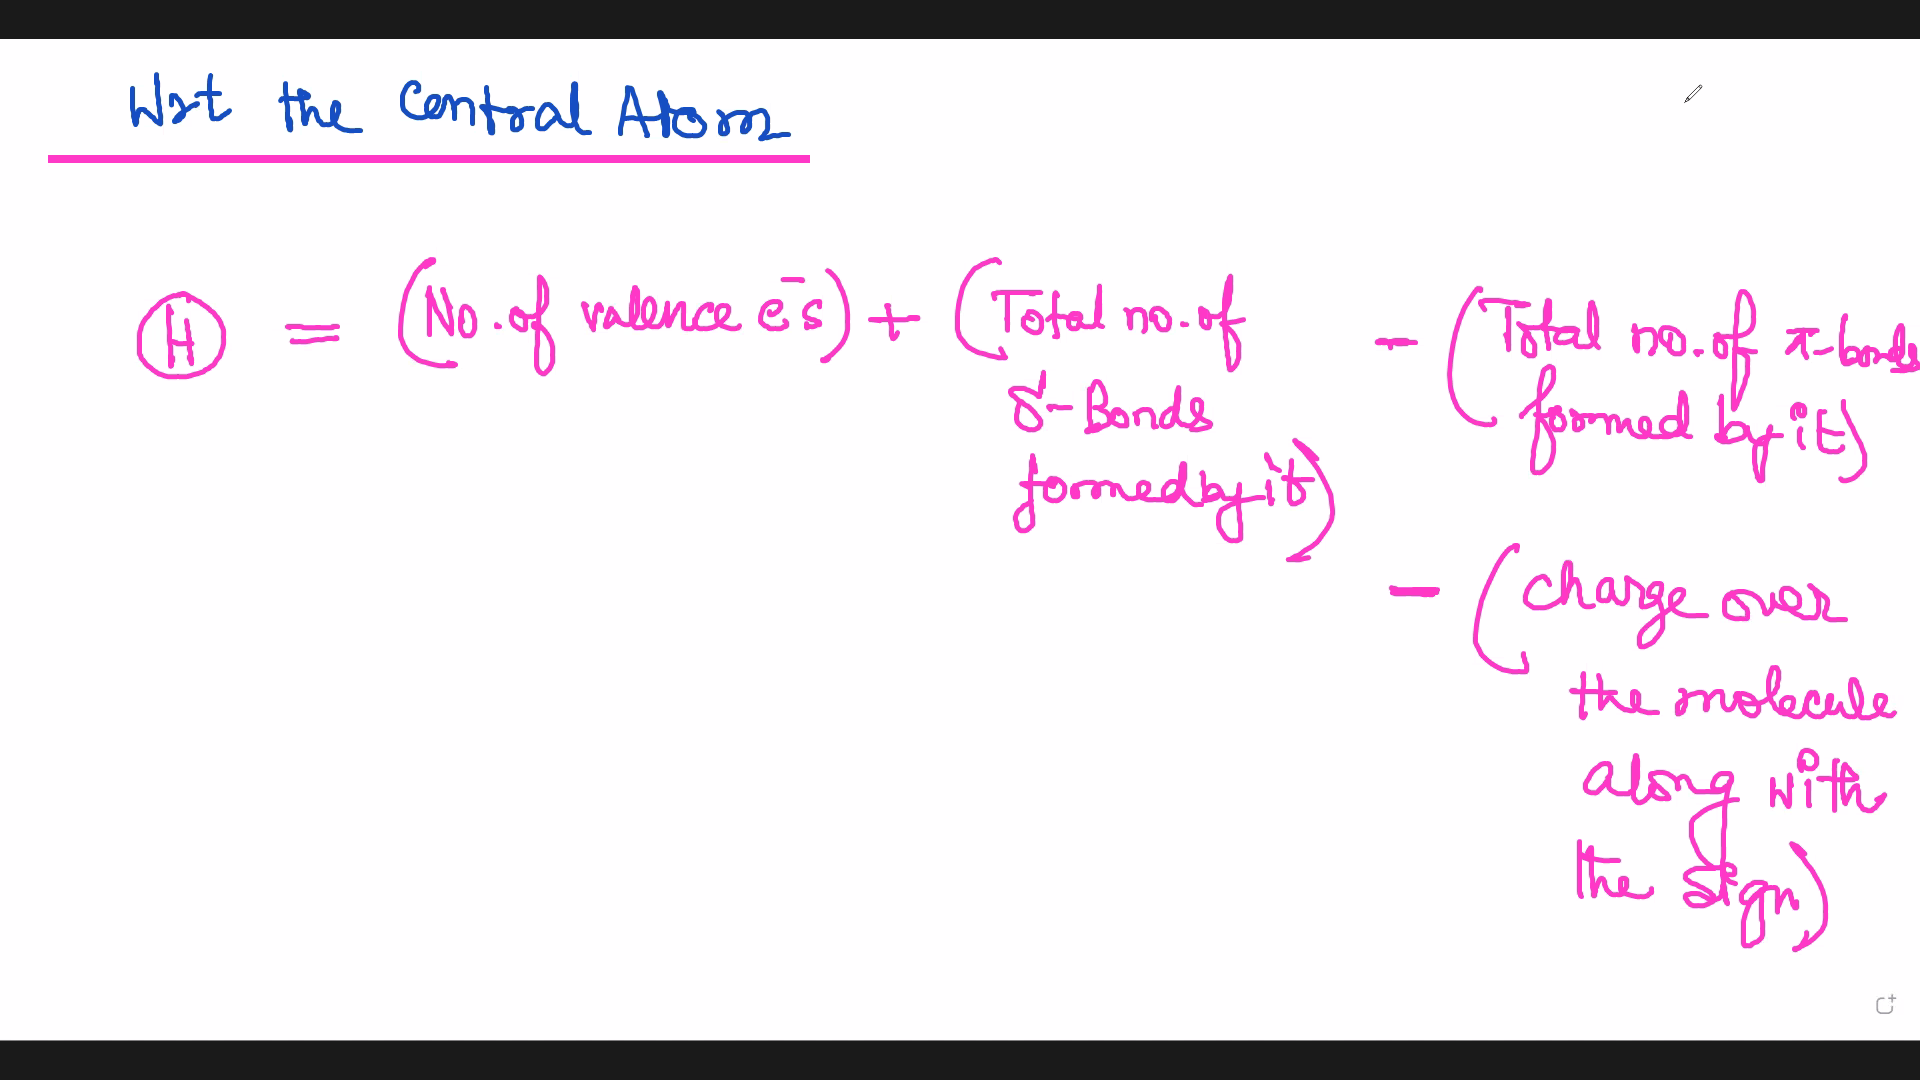 Wrt the Central Atom
H = (No. of valence e⁻s) + (Total no. of σ-Bonds formed by it) - (Total no. of π-bonds formed by it)
- (charge over
the molecule
along with
the sign)